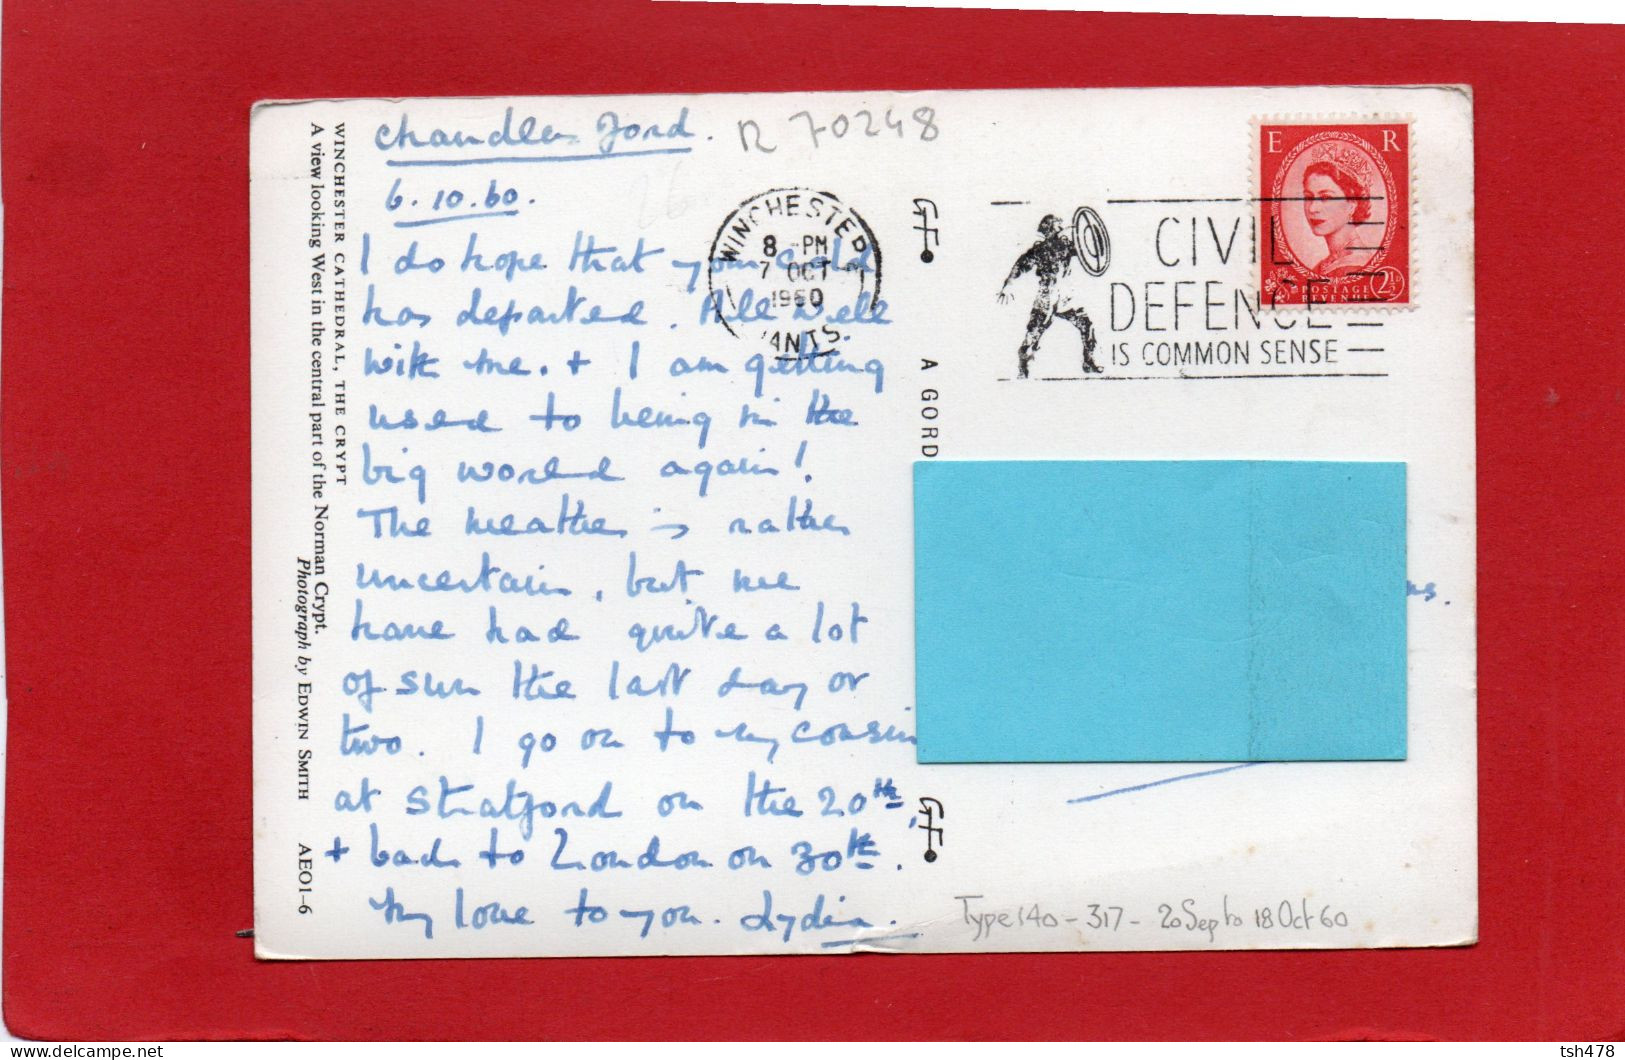 Chandlers Ford.
6.10.60.
I do hope that your cold
has departed. All well
with me. + I am getting
used to being in the
big world again!
The weather is rather
uncertain, but we
have had quite a lot
of sun the last day or
two. I go on to my cousin
at Stratford on the 20th,
+ back to London on 30th.
My love to you. Lydia.
R 70248
WINCHESTER
8 - PM
7 OCT
1960
HANTS
CIVIL
DEFENCE
IS COMMON SENSE
E R
POSTAGE
REVENUE
2½D
A GORD
ns.
WINCHESTER CATHEDRAL, THE CRYPT
A view looking West in the central part of the Norman Crypt.
Photograph by EDWIN SMITH AEO1-6
Type 140 - 317 - 20 Sep to 18 Oct 60
tsh478